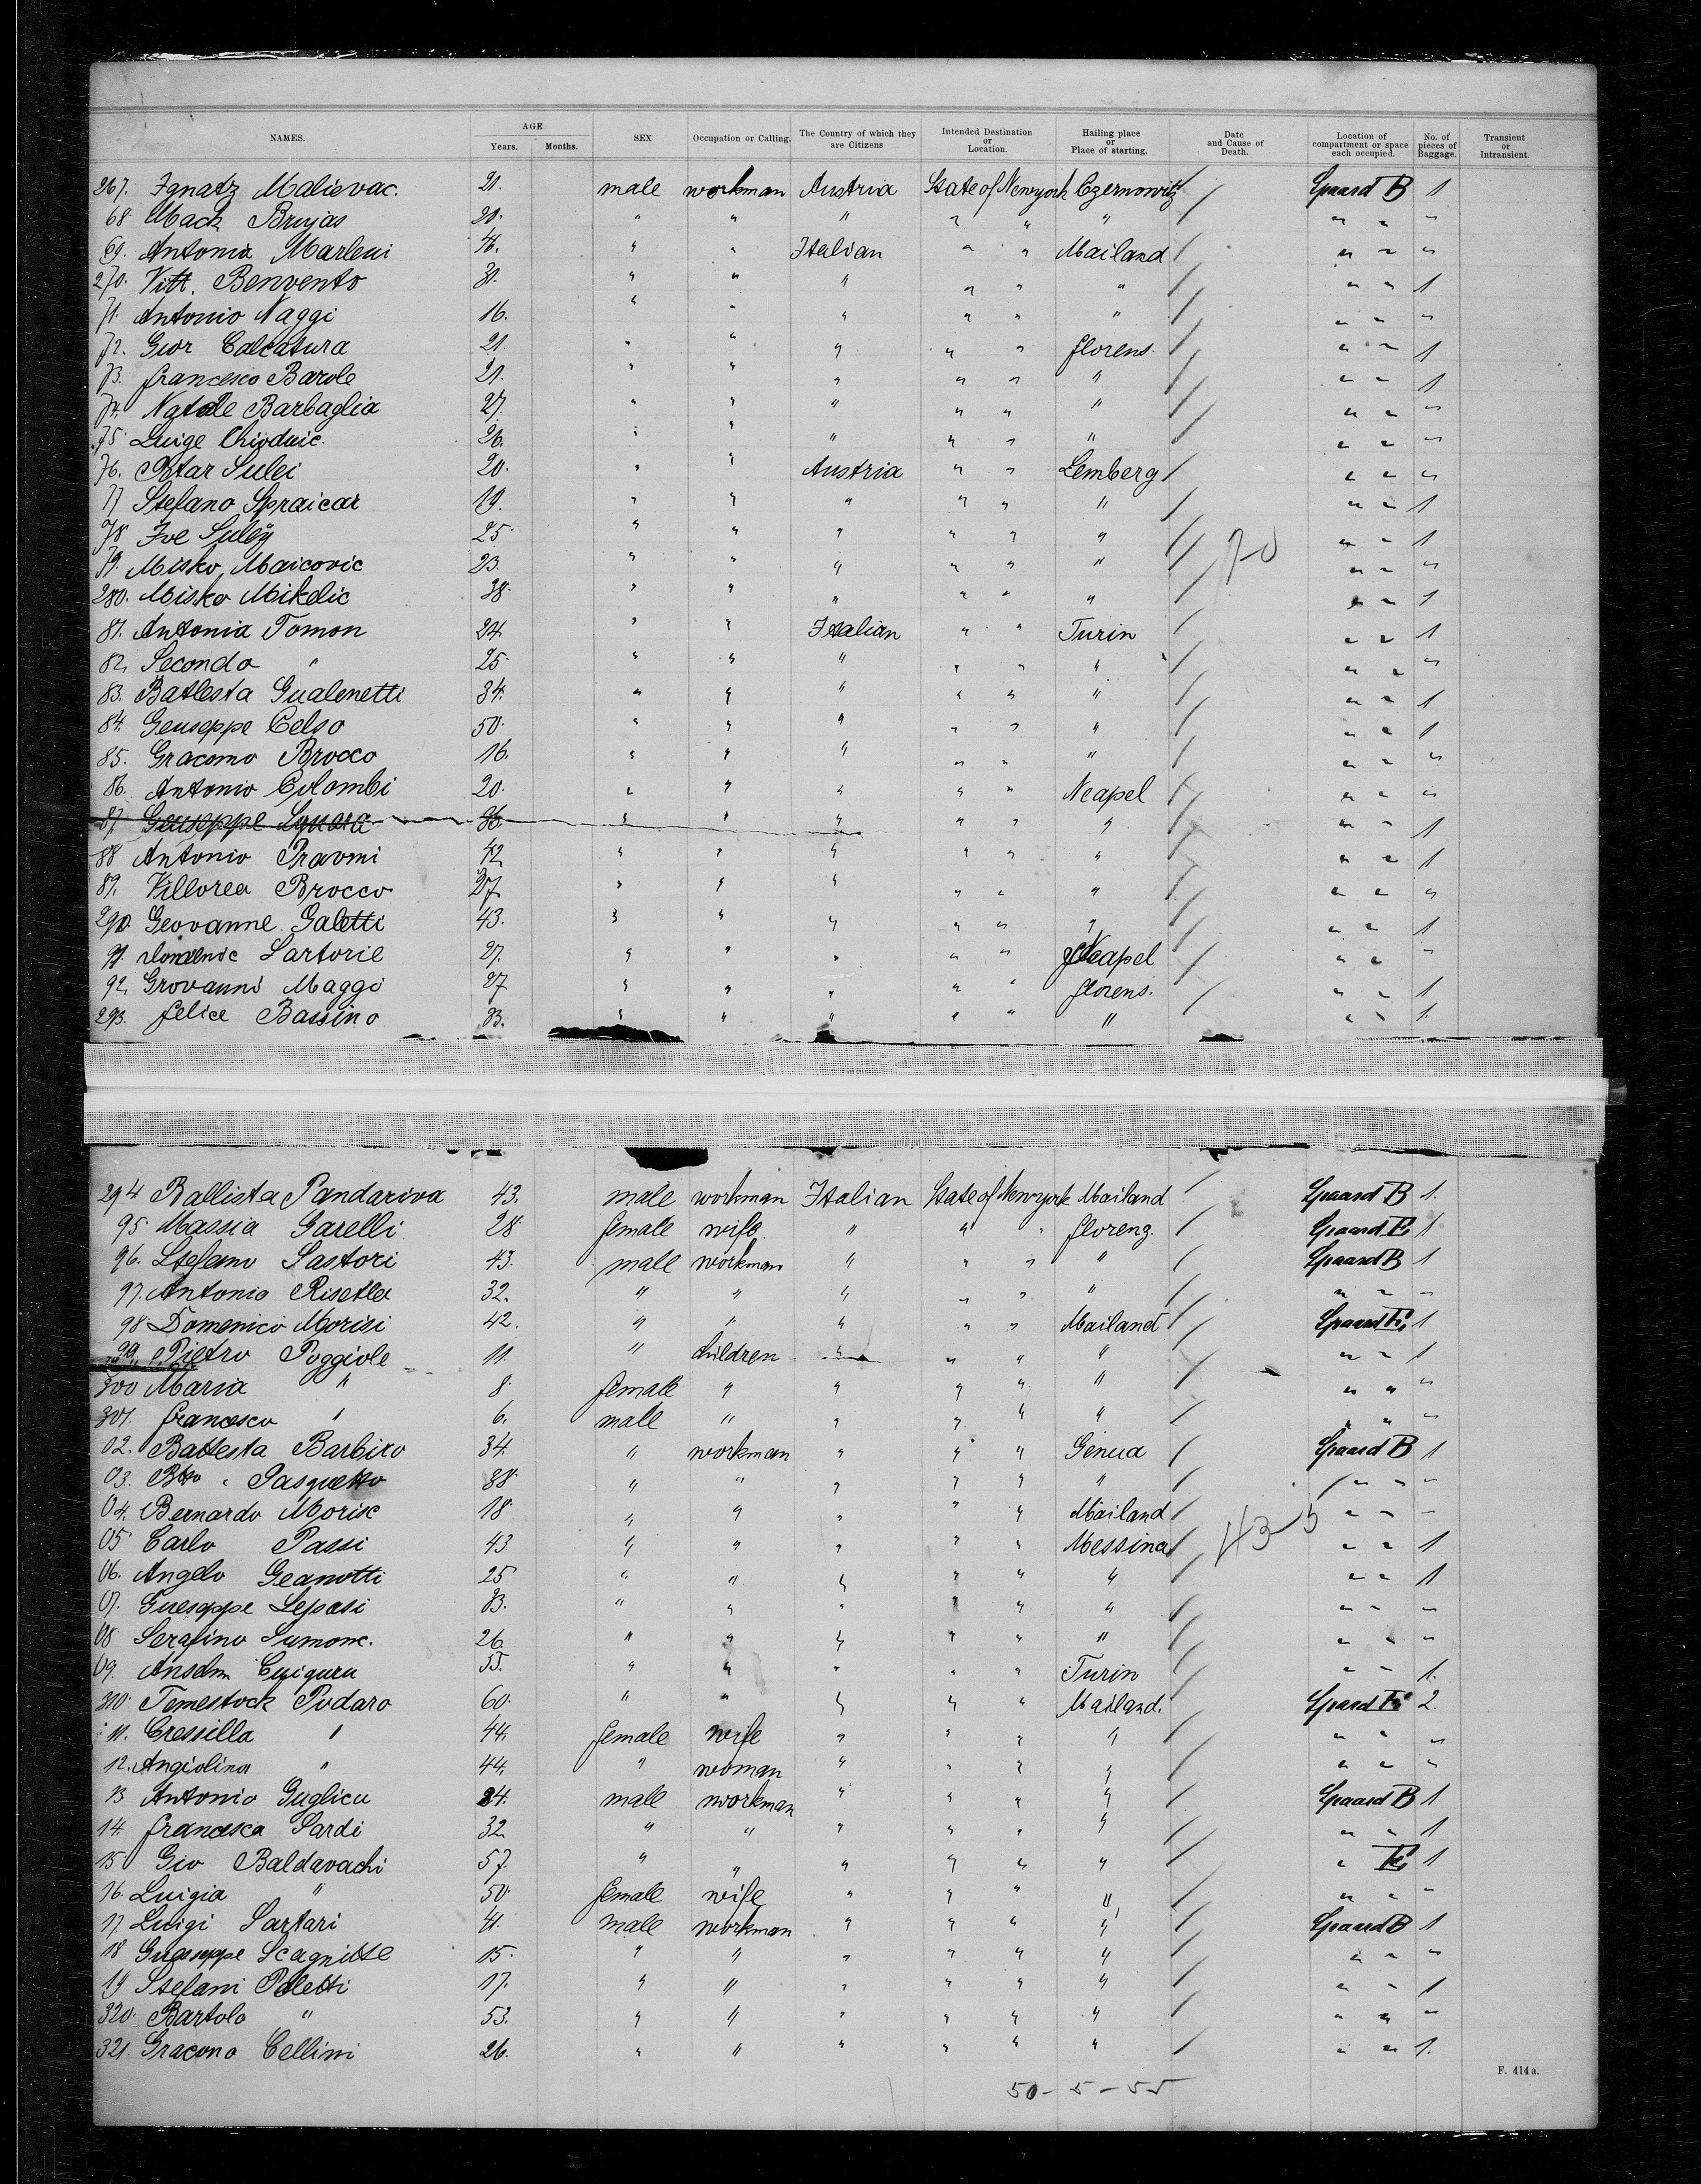 NAMES. AGE Years. Months. SEX Occupation or Calling. The Country of which they are Citizens Intended Destination or Location. Hailing place or Place of starting. Date and Cause of Death. Location of compartment or space each occupied. No. of pieces of Baggage. Transient or Intransient.
267. Ignatz Malievac. 21. male workman Austria State of Newyork Czernowitz / B 1
68 Mach Brujas 21. " " " " " " / " " "
69. Antonia Marleni " " Italian " " Mailand / " " "
270. Vitt. Benvento 31. " " " " " " / " " 1
71. Antonio Naggi 16. " " " " " " / " " "
72. Gior Calcatura 21. " " " " " florens. / " " 1
73. francesco Barole 21. " " " " " " / " " 1
74. Natale Barbaglia 27. " " " " " " / " " "
75. Luige 26. " " " " " " / " " "
76. Petar Sulei 20. " " Austria " " Lemberg / " " "
77 Stefano Spraicar 19. " " " " " " / " " 1
78 Ive Suley 25. " " " " " " / " " 1
79. Misko Maicovic 23. " " " " " " / " " "
280. Misko Mikelic 38. " " " " " " / " " 1
81. Antonia Tomon 24. " " Italian " " Turin / " " 1
82. Secondo " 25. " " " " " " / " " "
83. Batlesta Gualenetti 34. " " " " " " / " " 1
84. Geuseppe Celso 50. " " " " " " / " " 1
85. Gracomo Brocco 16. " " " " " " / " " "
86. Antonio Colombi 20. " " " " " Neapel / " " "
87 Geuseppe 36. " " " " " " / " " 1
88 Antonio Pravmi 42 " " " " " " / " " 1
89. Villorea Brocco 27. " " " " " " / " " "
290. Geovanne Galetti 43. " " " " " " / " " 1
91. Domenic Sartorie 27. " " " " " Neapel / " " "
92. Grovanni Maggi 27 " " " " " florens. / " " 1
293. felice Bassino 33. " " " " " " " " 1.
294 Ballista Pandariva 43. male workman Italian State of Newyork Mailand / B 1.
95. Massia Garelli 28. female wife. " " " florenz. / E 1
96. Stefano Sastori 43. male workman " " " " / B 1
97. Antonio Risetla 32. " " " " " " / " " "
98. Domenico Morisi 42. " " " " " Mailand / E 1
99. Pietro Poggiole 11. " children " " " " / " " 1
300 Maria " 8. female " " " " " / " " "
301. francesco " 6. male " " " " " / " " "
02. Battesta Barbiro 34. " workman " " " Genua / B 1
03. Btto. Pasquetto 38. " " " " " " " " "
04. Bernardo Morisc 18. " " " " " Mailand / " " "
05 Carlo Passi 43. " " " " " Messina / " " 1
06. Angelo Geanotti 25 " " " " " " / " " 1
07. Guesoppe Lepasi 33. " " " " " " / " " "
08 Serafino Sumone. 26. " " " " " " / " " "
09. Anselm Cuiguru 55. " " " " " Turin / " " 1.
310. Temestock Podaro 60. " " " " " Mailand. / E 2.
11. Cressilla " 44. female wife " " " " / " " "
12. Angiolina " 44. " woman " " " " / " " "
13 Antonio Guglicu 24. male workman " " " " / B 1
14. francesca Sardi 32 " " " " " " / " " 1
15 Gio Baldavachi 57. " " " " " " / " E 1
16. Luigia " 50. female wife " " " " / " " "
17. Luigi Sartari 41. male workman " " " " / B 1
18 Gueseppe Scagnitte 15. " " " " " " / " " "
19 Stefani Poletti 17. " " " " " " / " " 1
320. Bartolo " 53. " " " " " " / " " "
321. Gracono Cellini 26. " " " " " " / " " 1.
F. 414 a.
50 - 5 - 55